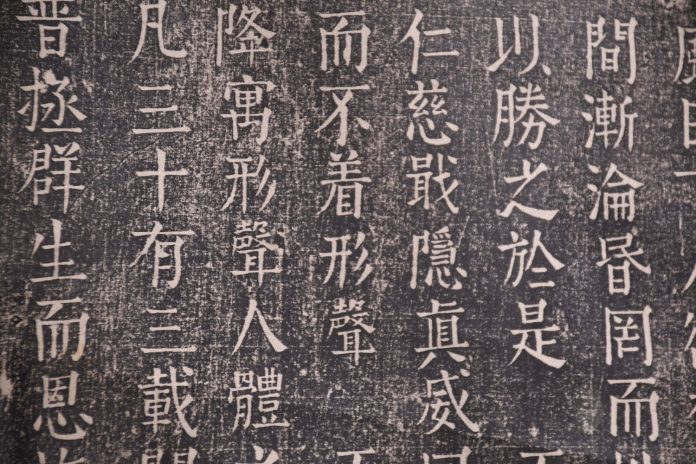 間漸淪昬罔而
以勝之於是
仁慈戢隱眞威
而不着形聲
降寓形聲人體
凡三十有三載
普拯群生而恩